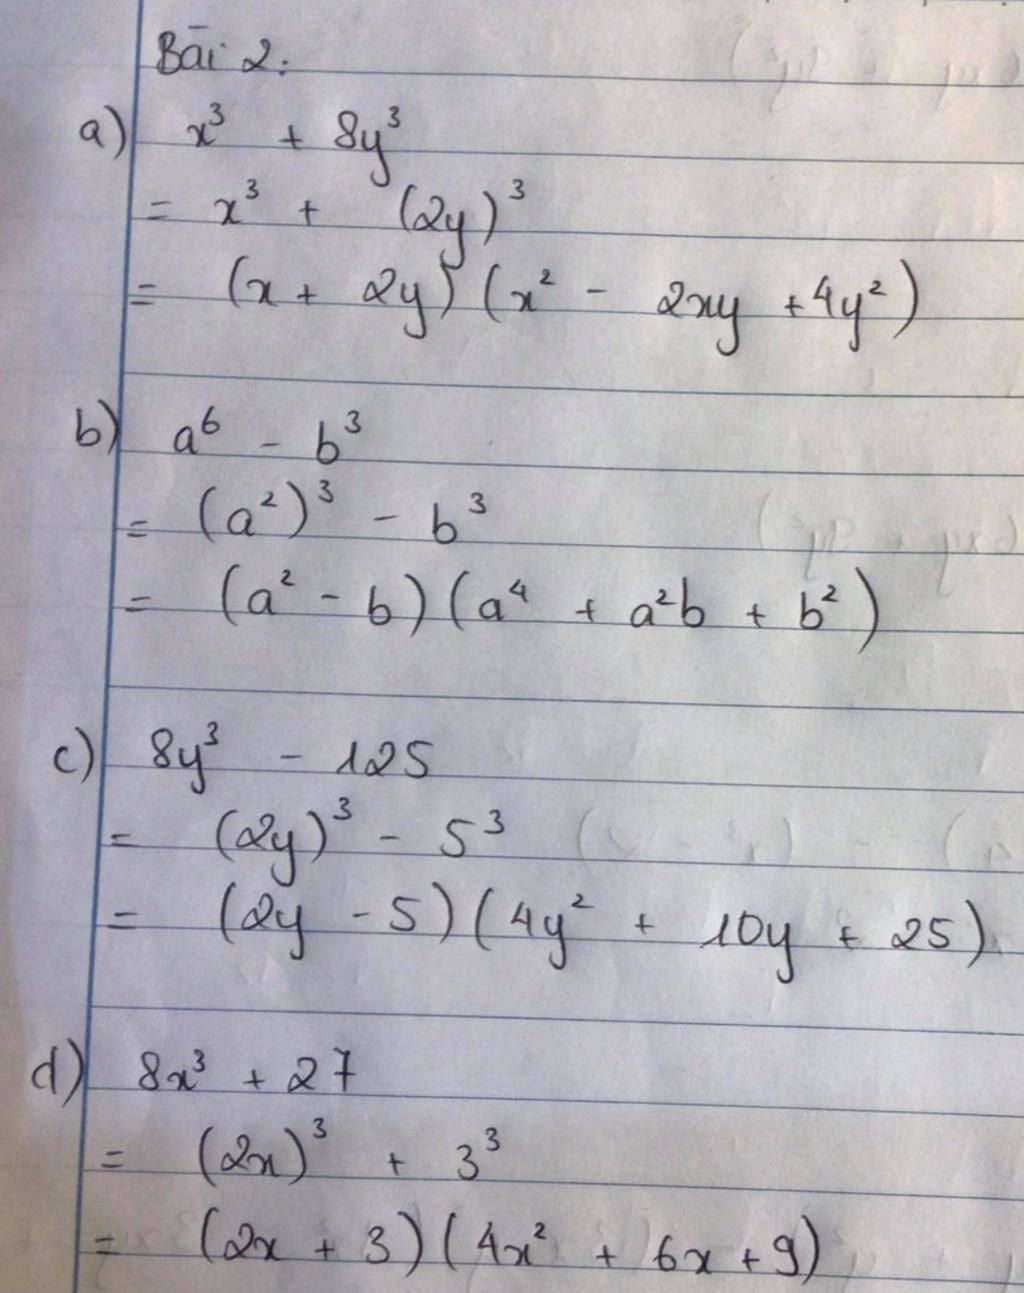 Bài 2:
a) x³ + 8y³
= x³ + (2y)³
= (x + 2y) (x² - 2xy + 4y²)
b) a⁶ - b³
= (a²)³ - b³
= (a² - b) (a⁴ + a²b + b²)
c) 8y³ - 125
= (2y)³ - 5³
= (2y - 5) (4y² + 10y + 25)
d) 8x³ + 27
= (2x)³ + 3³
= (2x + 3) (4x² + 6x + 9)